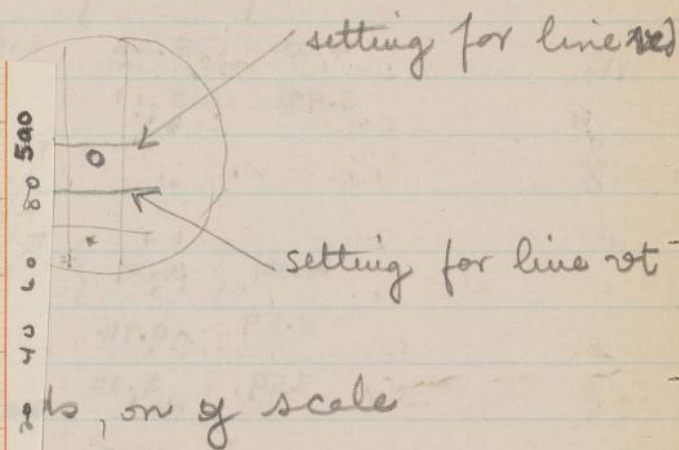 setting for line red
O
setting for line vt
500
80
60
40
20
, on y scale